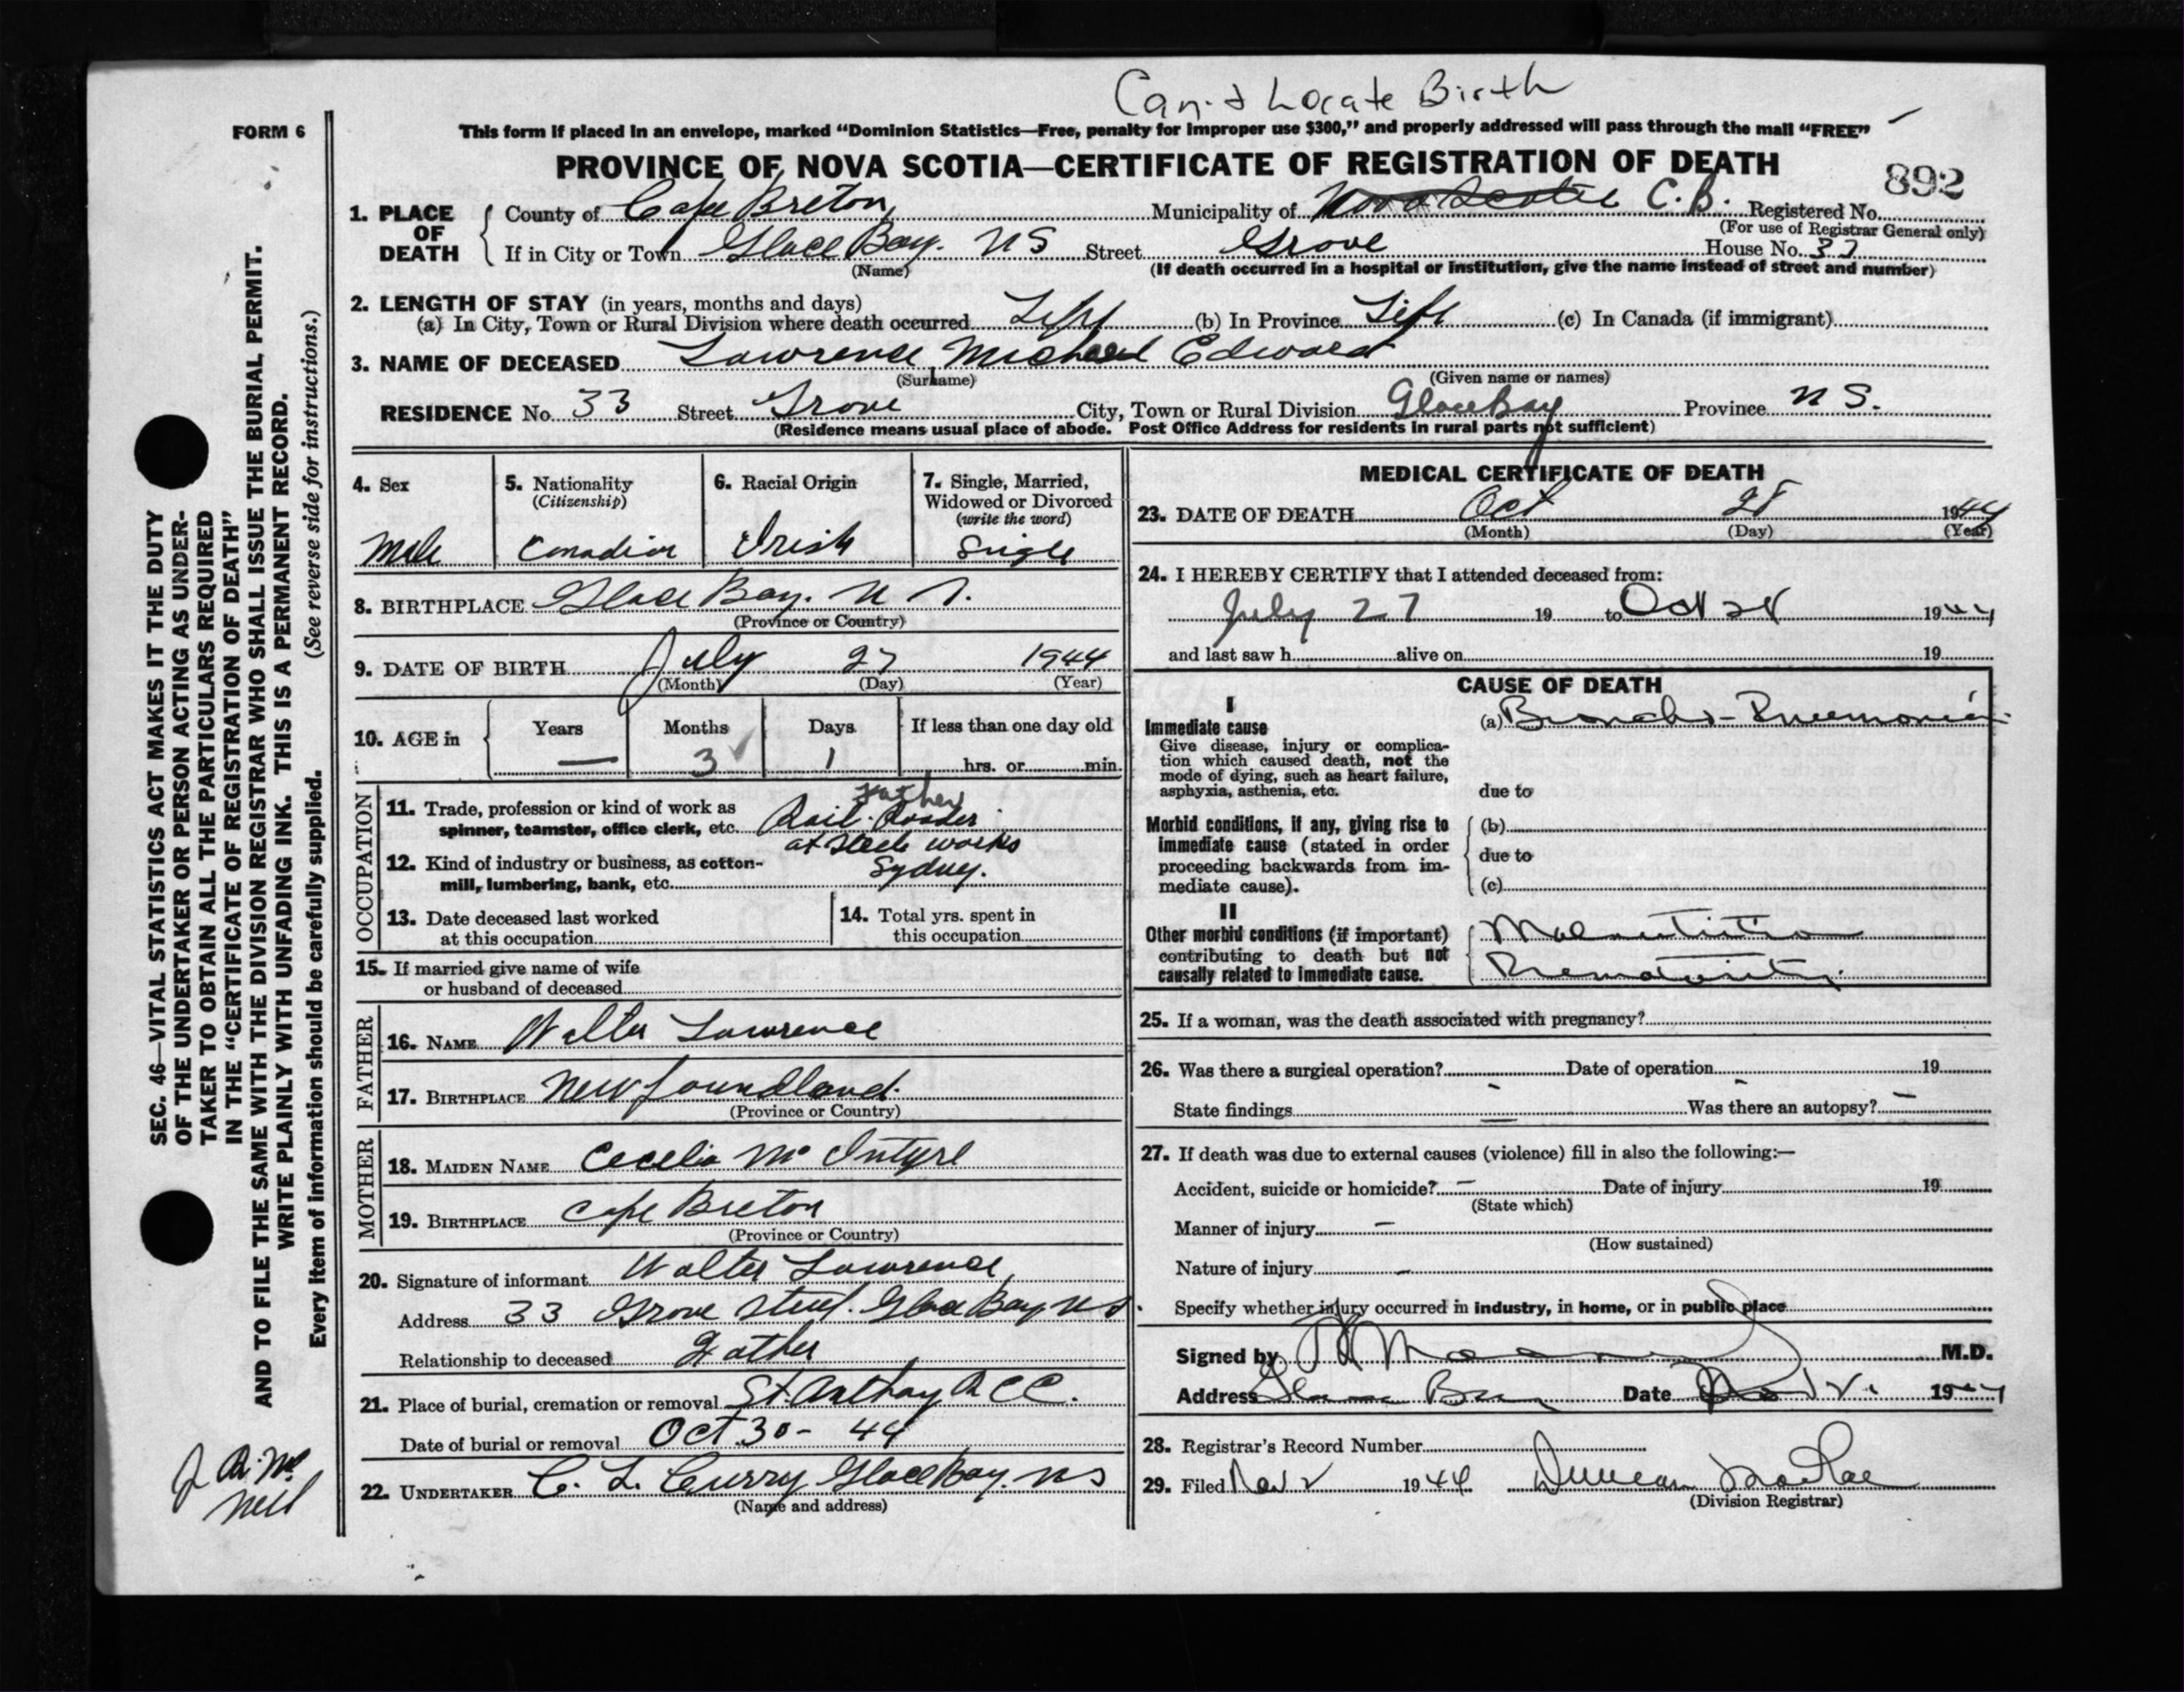 Can't Locate Birth
FORM 6
This form if placed in an envelope, marked "Dominion Statistics—Free, penalty for improper use $300," and properly addressed will pass through the mail "FREE"
PROVINCE OF NOVA SCOTIA—CERTIFICATE OF REGISTRATION OF DEATH
892
1. PLACE OF DEATH
County of Cape Breton Municipality of Nova Scotia C.B. Registered No.
(For use of Registrar General only)
If in City or Town Glace Bay. NS Street Grove House No. 33
(Name) (If death occurred in a hospital or institution, give the name instead of street and number)
2. LENGTH OF STAY (in years, months and days)
(a) In City, Town or Rural Division where death occurred Life (b) In Province Life (c) In Canada (if immigrant)
3. NAME OF DECEASED Lawrence Michael Edward
(Surname) (Given name or names)
RESIDENCE No. 33 Street Grove City, Town or Rural Division Glace Bay Province N S.
(Residence means usual place of abode. Post Office Address for residents in rural parts not sufficient)
4. Sex
Male
5. Nationality
(Citizenship)
Canadian
6. Racial Origin
Irish
7. Single, Married,
Widowed or Divorced
(write the word)
Single
8. BIRTHPLACE Glace Bay. N S.
(Province or Country)
9. DATE OF BIRTH July 27 1944
(Month) (Day) (Year)
10. AGE in Years Months Days If less than one day old
— 3 1 hrs. or min.
OCCUPATION
11. Trade, profession or kind of work as
spinner, teamster, office clerk, etc.
Father
Rail
at Steele works
12. Kind of industry or business, as cotton-
mill, lumbering, bank, etc. Sydney.
13. Date deceased last worked
at this occupation
14. Total yrs. spent in
this occupation
15. If married give name of wife
or husband of deceased
FATHER
16. NAME Walter Lawrence
17. BIRTHPLACE Newfoundland.
(Province or Country)
MOTHER
18. MAIDEN NAME Cecelia Mc Intyre
19. BIRTHPLACE Cape Breton
(Province or Country)
20. Signature of informant Walter Lawrence
Address 33 Grove Street. Glace Bay NS.
Relationship to deceased Father
21. Place of burial, cremation or removal St. Anthony R C C.
Date of burial or removal Oct 30 - 44
22. UNDERTAKER C. L. Curry Glace Bay. NS
(Name and address)
MEDICAL CERTIFICATE OF DEATH
23. DATE OF DEATH Oct 28 1944
(Month) (Day) (Year)
24. I HEREBY CERTIFY that I attended deceased from:
July 27 19 to Oct 28 1944
and last saw h alive on 19
CAUSE OF DEATH
I
Immediate cause
Give disease, injury or complica-
tion which caused death, not the
mode of dying, such as heart failure,
asphyxia, asthenia, etc.
(a) Broncho-Pneumonia
due to
Morbid conditions, if any, giving rise to
immediate cause (stated in order
proceeding backwards from im-
mediate cause).
(b)
due to
(c)
II
Other morbid conditions (if important)
contributing to death but not
causally related to immediate cause.
Malnutrition
Prematurity.
25. If a woman, was the death associated with pregnancy?
26. Was there a surgical operation? - Date of operation - 19
State findings — Was there an autopsy? —
27. If death was due to external causes (violence) fill in also the following:—
Accident, suicide or homicide? — Date of injury 19
(State which)
Manner of injury —
(How sustained)
Nature of injury -
Specify whether injury occurred in industry, in home, or in public place
Signed by M.D.
Address Glace Bay Date Nov 2. 1944
28. Registrar's Record Number
29. Filed Nov 2 1944 Duncan MacRae
(Division Registrar)
SEC. 46—VITAL STATISTICS ACT MAKES IT THE DUTY
OF THE UNDERTAKER OR PERSON ACTING AS UNDER-
TAKER TO OBTAIN ALL THE PARTICULARS REQUIRED
IN THE "CERTIFICATE OF REGISTRATION OF DEATH"
AND TO FILE THE SAME WITH THE DIVISION REGISTRAR WHO SHALL ISSUE THE BURIAL PERMIT.
WRITE PLAINLY WITH UNFADING INK. THIS IS A PERMANENT RECORD.
Every item of information should be carefully supplied. (See reverse side for instructions.)